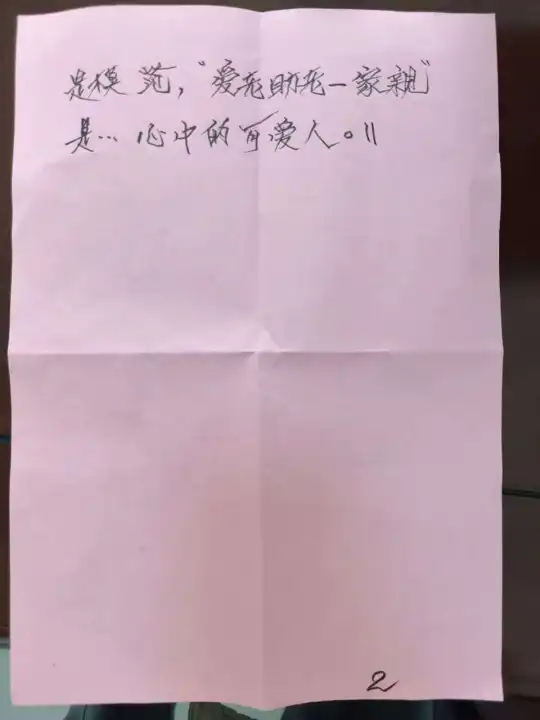 是模范，"爱老助老一家亲"
是… 心中的可爱人。11
2